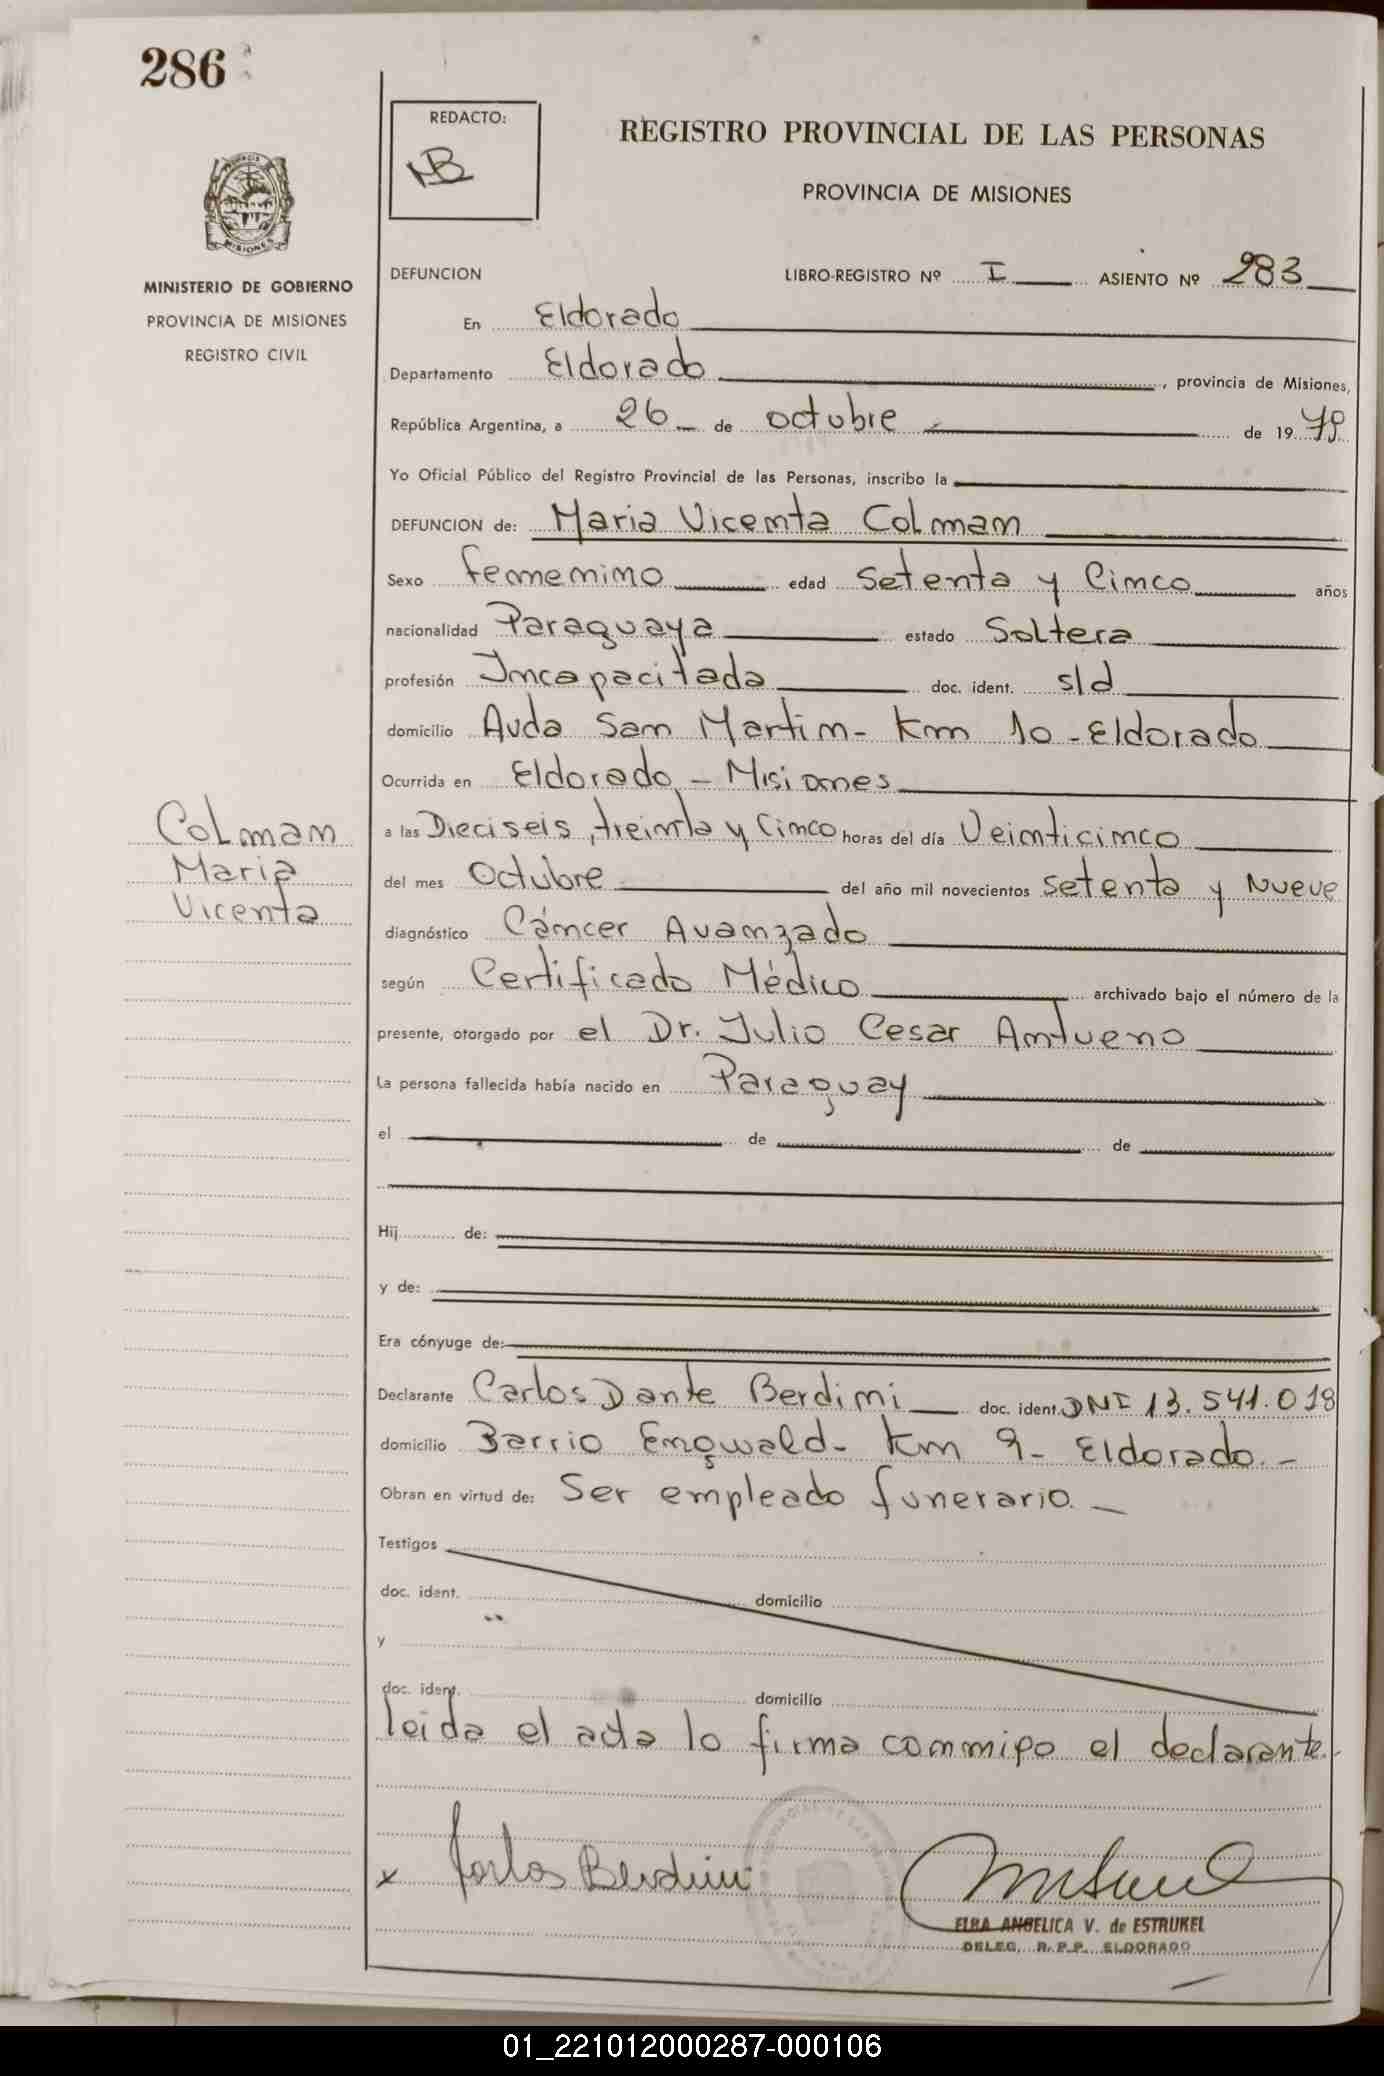 286
REDACTO:
NB
REGISTRO PROVINCIAL DE LAS PERSONAS
PROVINCIA DE MISIONES
MISIONES
MINISTERIO DE GOBIERNO
PROVINCIA DE MISIONES
REGISTRO CIVIL
DEFUNCION LIBRO-REGISTRO Nº I ASIENTO Nº 283
En Eldorado
Departamento Eldorado, provincia de Misiones,
República Argentina, a 26 de octubre de 1979
Yo Oficial Público del Registro Provincial de las Personas, inscribo la
DEFUNCION de: Maria Vicenta Colman
Sexo femenino edad Setenta y Cinco años
nacionalidad Paraguaya estado Soltera
profesión Incapacitada doc. ident. s/d
domicilio Avda San Martin - Km 10 - Eldorado
Ocurrida en Eldorado - Misiones
a las Dieciseis, treinta y Cinco horas del día Veinticinco
del mes Octubre del año mil novecientos setenta y Nueve
diagnóstico Cáncer Avanzado
según Certificado Médico archivado bajo el número de la
presente, otorgado por el Dr. Julio Cesar Antueno
La persona fallecida había nacido en Paraguay
el de de
Hij de:
y de:
Era cónyuge de:
Declarante Carlos Dante Berdini doc. ident. DNI 13.541.018
domicilio Barrio Engwald - Km 9 - Eldorado.-
Obran en virtud de: Ser empleado funerario.-
Testigos
doc. ident. domicilio
y
doc. ident. domicilio
leida el acta lo firma conmigo el declarante.-
Colman
Maria
Vicenta
x Carlos Berdini
ELBA ANGELICA V. de ESTRUKEL
DELEG. R.P.P. ELDORADO
01_221012000287-000106